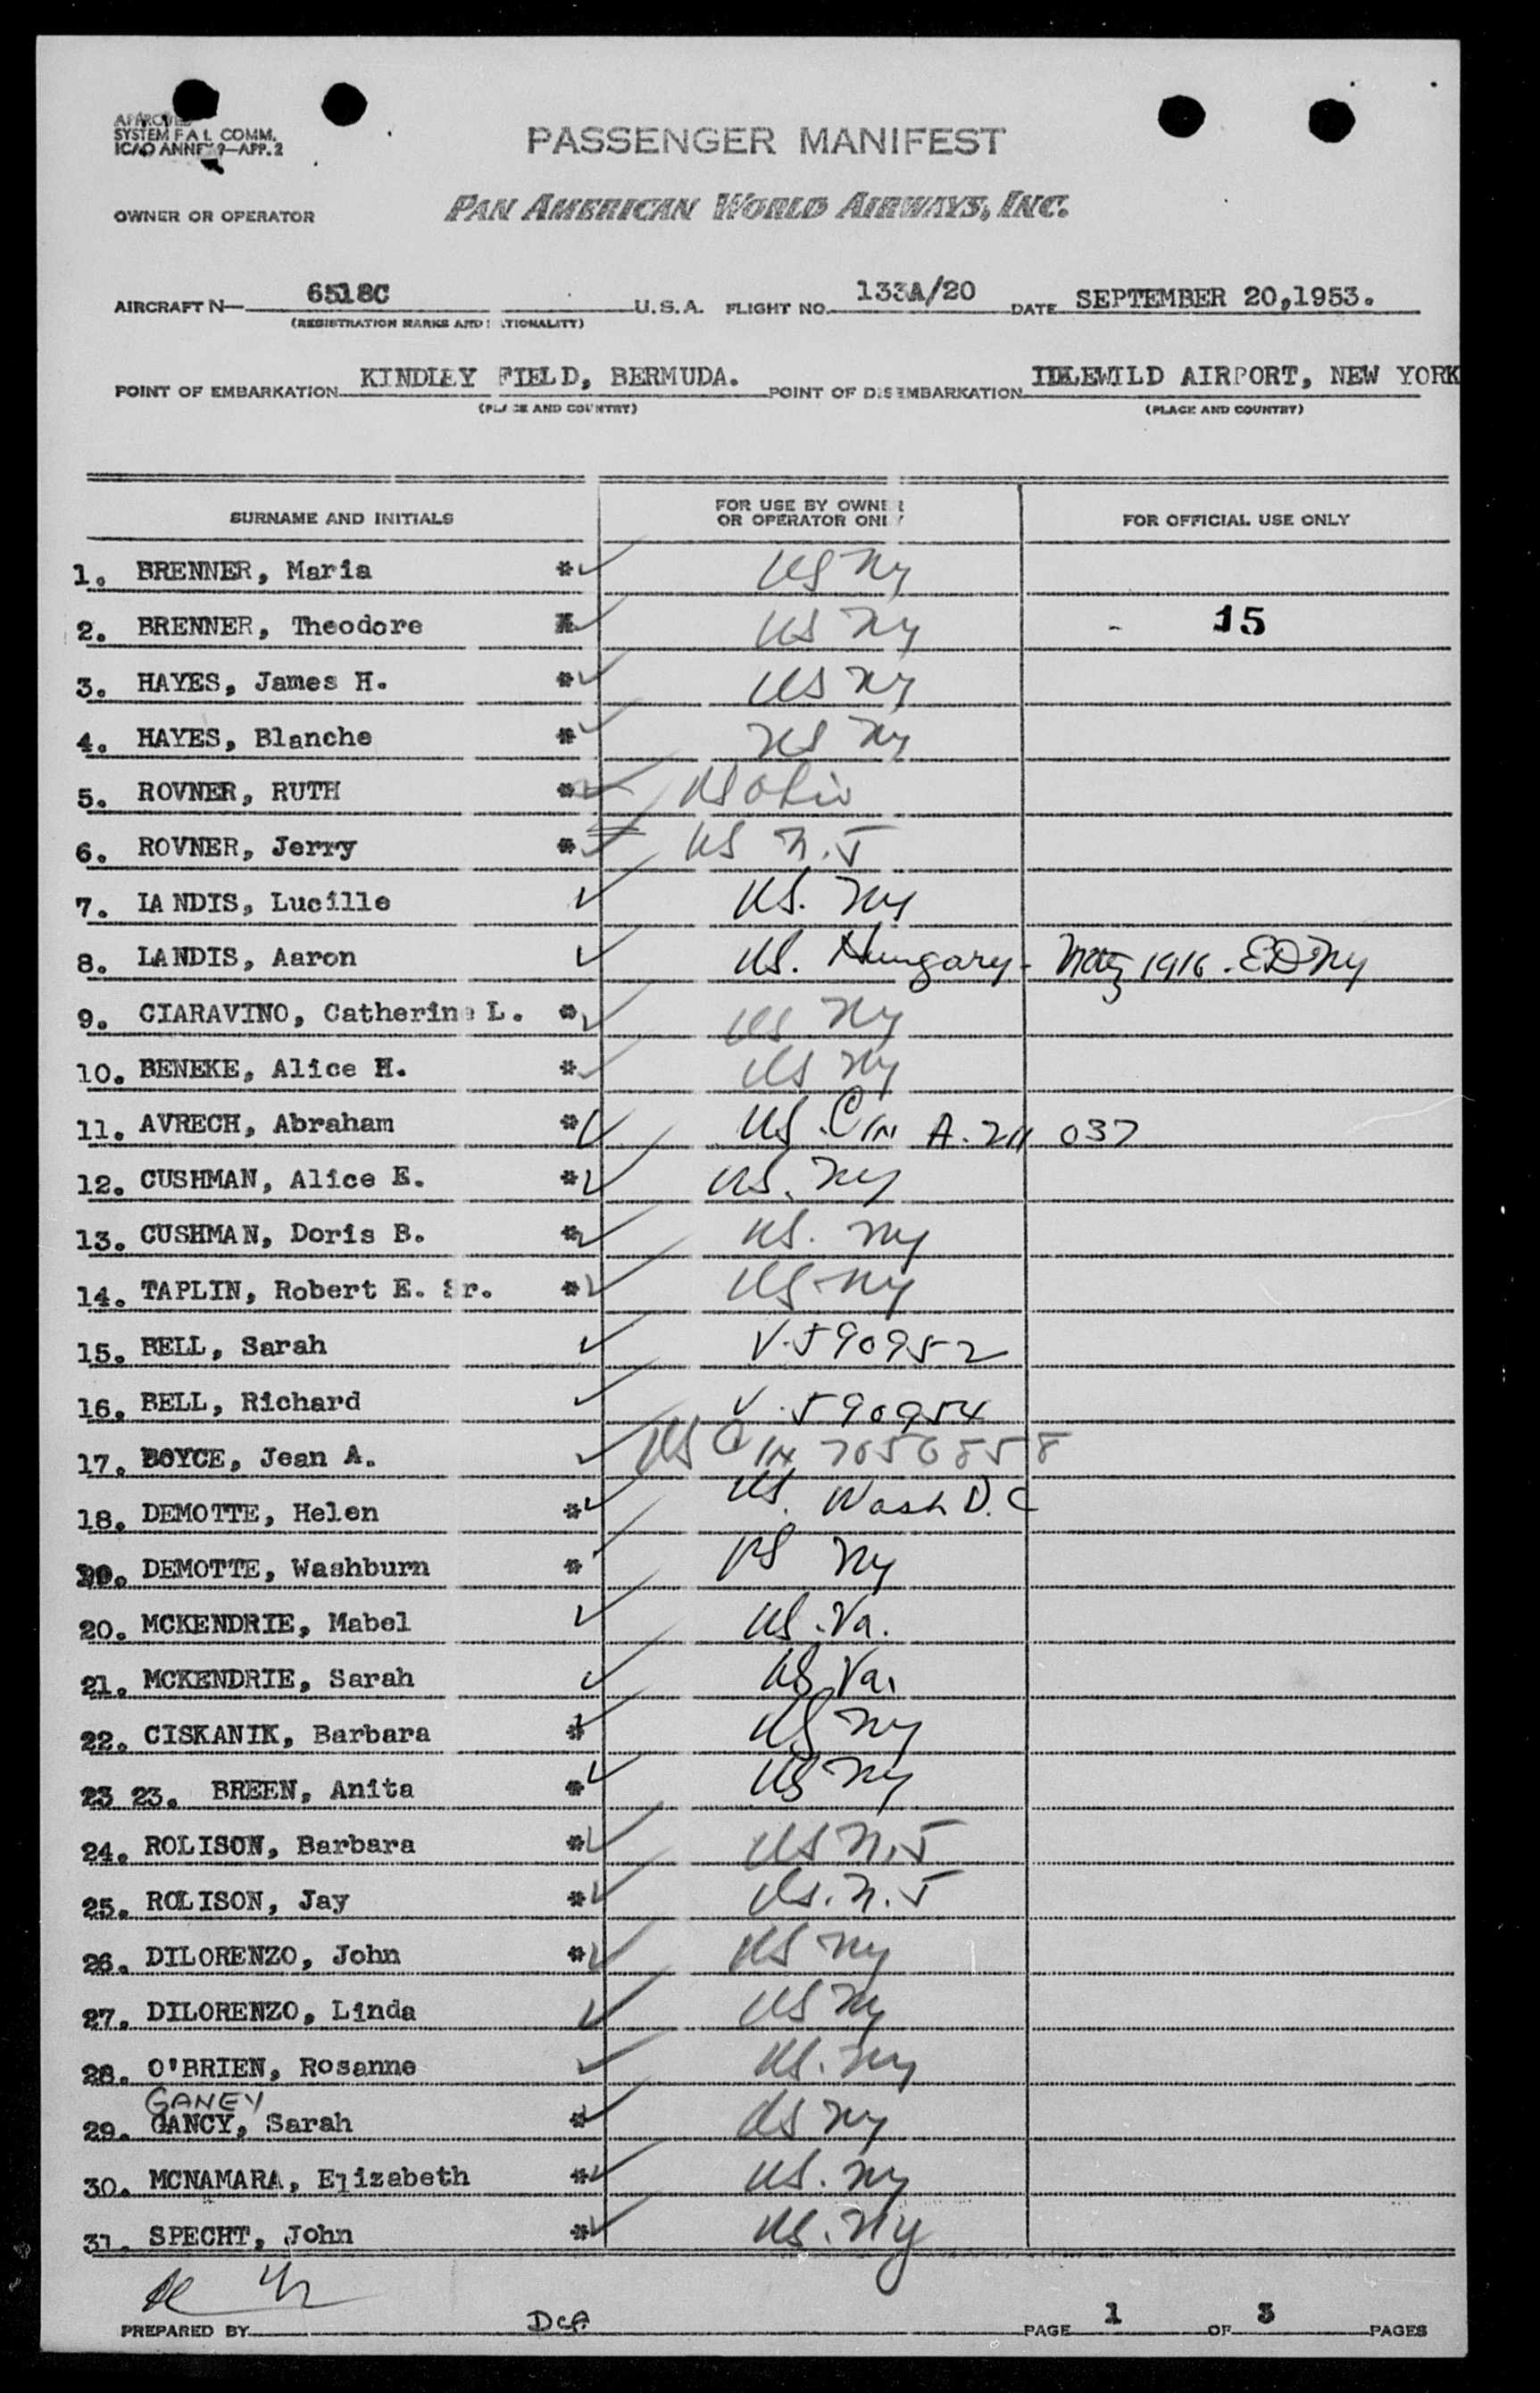 APPROVED
SYSTEM F A L COMM.
ICAO ANNEX 9—APP. 2
PASSENGER MANIFEST
OWNER OR OPERATOR PAN AMERICAN WORLD AIRWAYS, INC.
AIRCRAFT N— 6518C U.S.A. FLIGHT NO. 133A/20 DATE SEPTEMBER 20,1953.
(REGISTRATION MARKS AND NATIONALITY)
POINT OF EMBARKATION KINDLEY FIELD, BERMUDA. POINT OF DISEMBARKATION IDLEWILD AIRPORT, NEW YORK
(PLACE AND COUNTRY) (PLACE AND COUNTRY)
SURNAME AND INITIALS FOR USE BY OWNER OR OPERATOR ONLY FOR OFFICIAL USE ONLY
1. BRENNER, Maria * ✓ US NY
2. BRENNER, Theodore * ✓ US NY - 15
3. HAYES, James H. * ✓ US NY
4. HAYES, Blanche * ✓ US NY
5. ROVNER, RUTH * ✓ US Ohio
6. ROVNER, Jerry * ✓ US N.J
7. LANDIS, Lucille ✓ US. NY
8. LANDIS, Aaron ✓ US. Hungary - Natz 1916. ED NY
9. CIARAVINO, Catherine L. * ✓ US NY
10. BENEKE, Alice H. * ✓ US NY
11. AVRECH, Abraham * ✓ US. C in A. 211 037
12. CUSHMAN, Alice E. * ✓ US. NY
13. CUSHMAN, Doris B. * ✓ US. NY
14. TAPLIN, Robert E. Sr. * ✓ US-NY
15. BELL, Sarah ✓ V-590952
16. BELL, Richard ✓ V-590954
17. BOYCE, Jean A. ✓ US C in 7056858
18. DEMOTTE, Helen * ✓ US. Wash D.C
19. DEMOTTE, Washburn * ✓ US NY
20. MCKENDRIE, Mabel ✓ US. Va.
21. MCKENDRIE, Sarah ✓ US Va.
22. CISKANIK, Barbara * ✓ US NY
23 23. BREEN, Anita * ✓ US NY
24. ROLISON, Barbara * ✓ US N.J
25. ROLISON, Jay * ✓ US. N. J
26. DILORENZO, John * ✓ US NY
27. DILORENZO, Linda ✓ US NY
28. O'BRIEN, Rosanne ✓ US. NY
GANEY
29. GANCY, Sarah * ✓ US NY
30. MCNAMARA, Elizabeth * ✓ US. NY
31. SPECHT, John * ✓ US. NY
PREPARED BY DCA PAGE 1 OF 3 PAGES